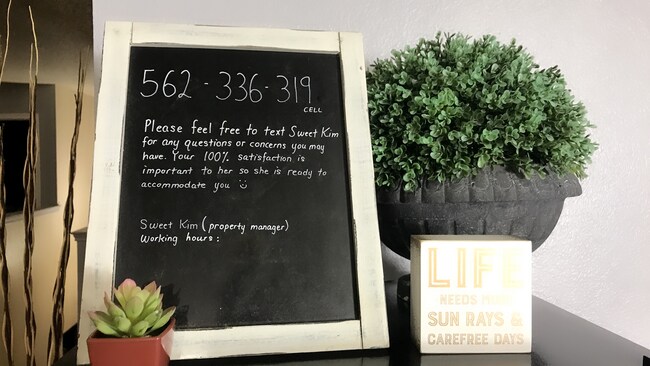 562-336-319
CELL
Please feel free to text Sweet Kim
for any questions or concerns you may
have. Your 100% satisfaction is
important to her so she is ready to
accommodate you
Sweet Kim (property manager)
Working hours:
LIFE
NEEDS MORE
SUN RAYS &
CAREFREE DAYS